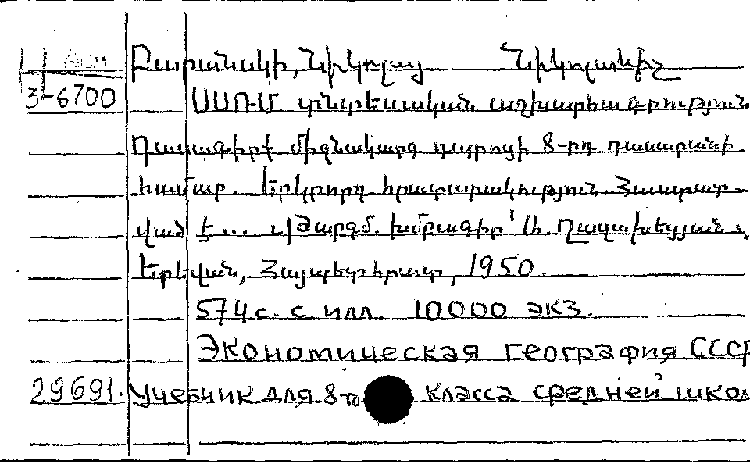 Բարանսկի, Նիկոլայ Նիկոլաևիչ
3-6700 ՍՍՌՄ տնտեսական աշխարհագրություն
Դասագիրք միջնակարգ դպրոցի 8-րդ դասարանի
համար. Երկրորդ հրատարակություն. Հաստատ-
ված է... Թարգմ. խմբագիր՝
Երևան, Հայպետհրատ, 1950.
574 с. с илл. 10000 экз.
Экономическая география СССР
29691. Учебник для 8-го класса средней школ